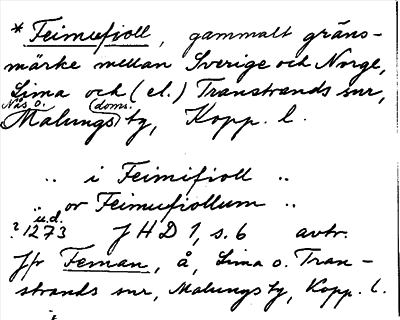 *Feimufioll, gammalt gräns-
märke mellan Sverige och Norge,
Lima och (el.) Transtrands snr,
Nås o. (doms.)
Malungs tg, Kopp. l.
.. i Feimifioll ..
.. or Feimufiollum ..
u.d.
?1273 JHD 1, s. 6 avtr.
Jfr Feman, å, Lima o. Tran-
strands snr, Malungs tg, Kopp. l.